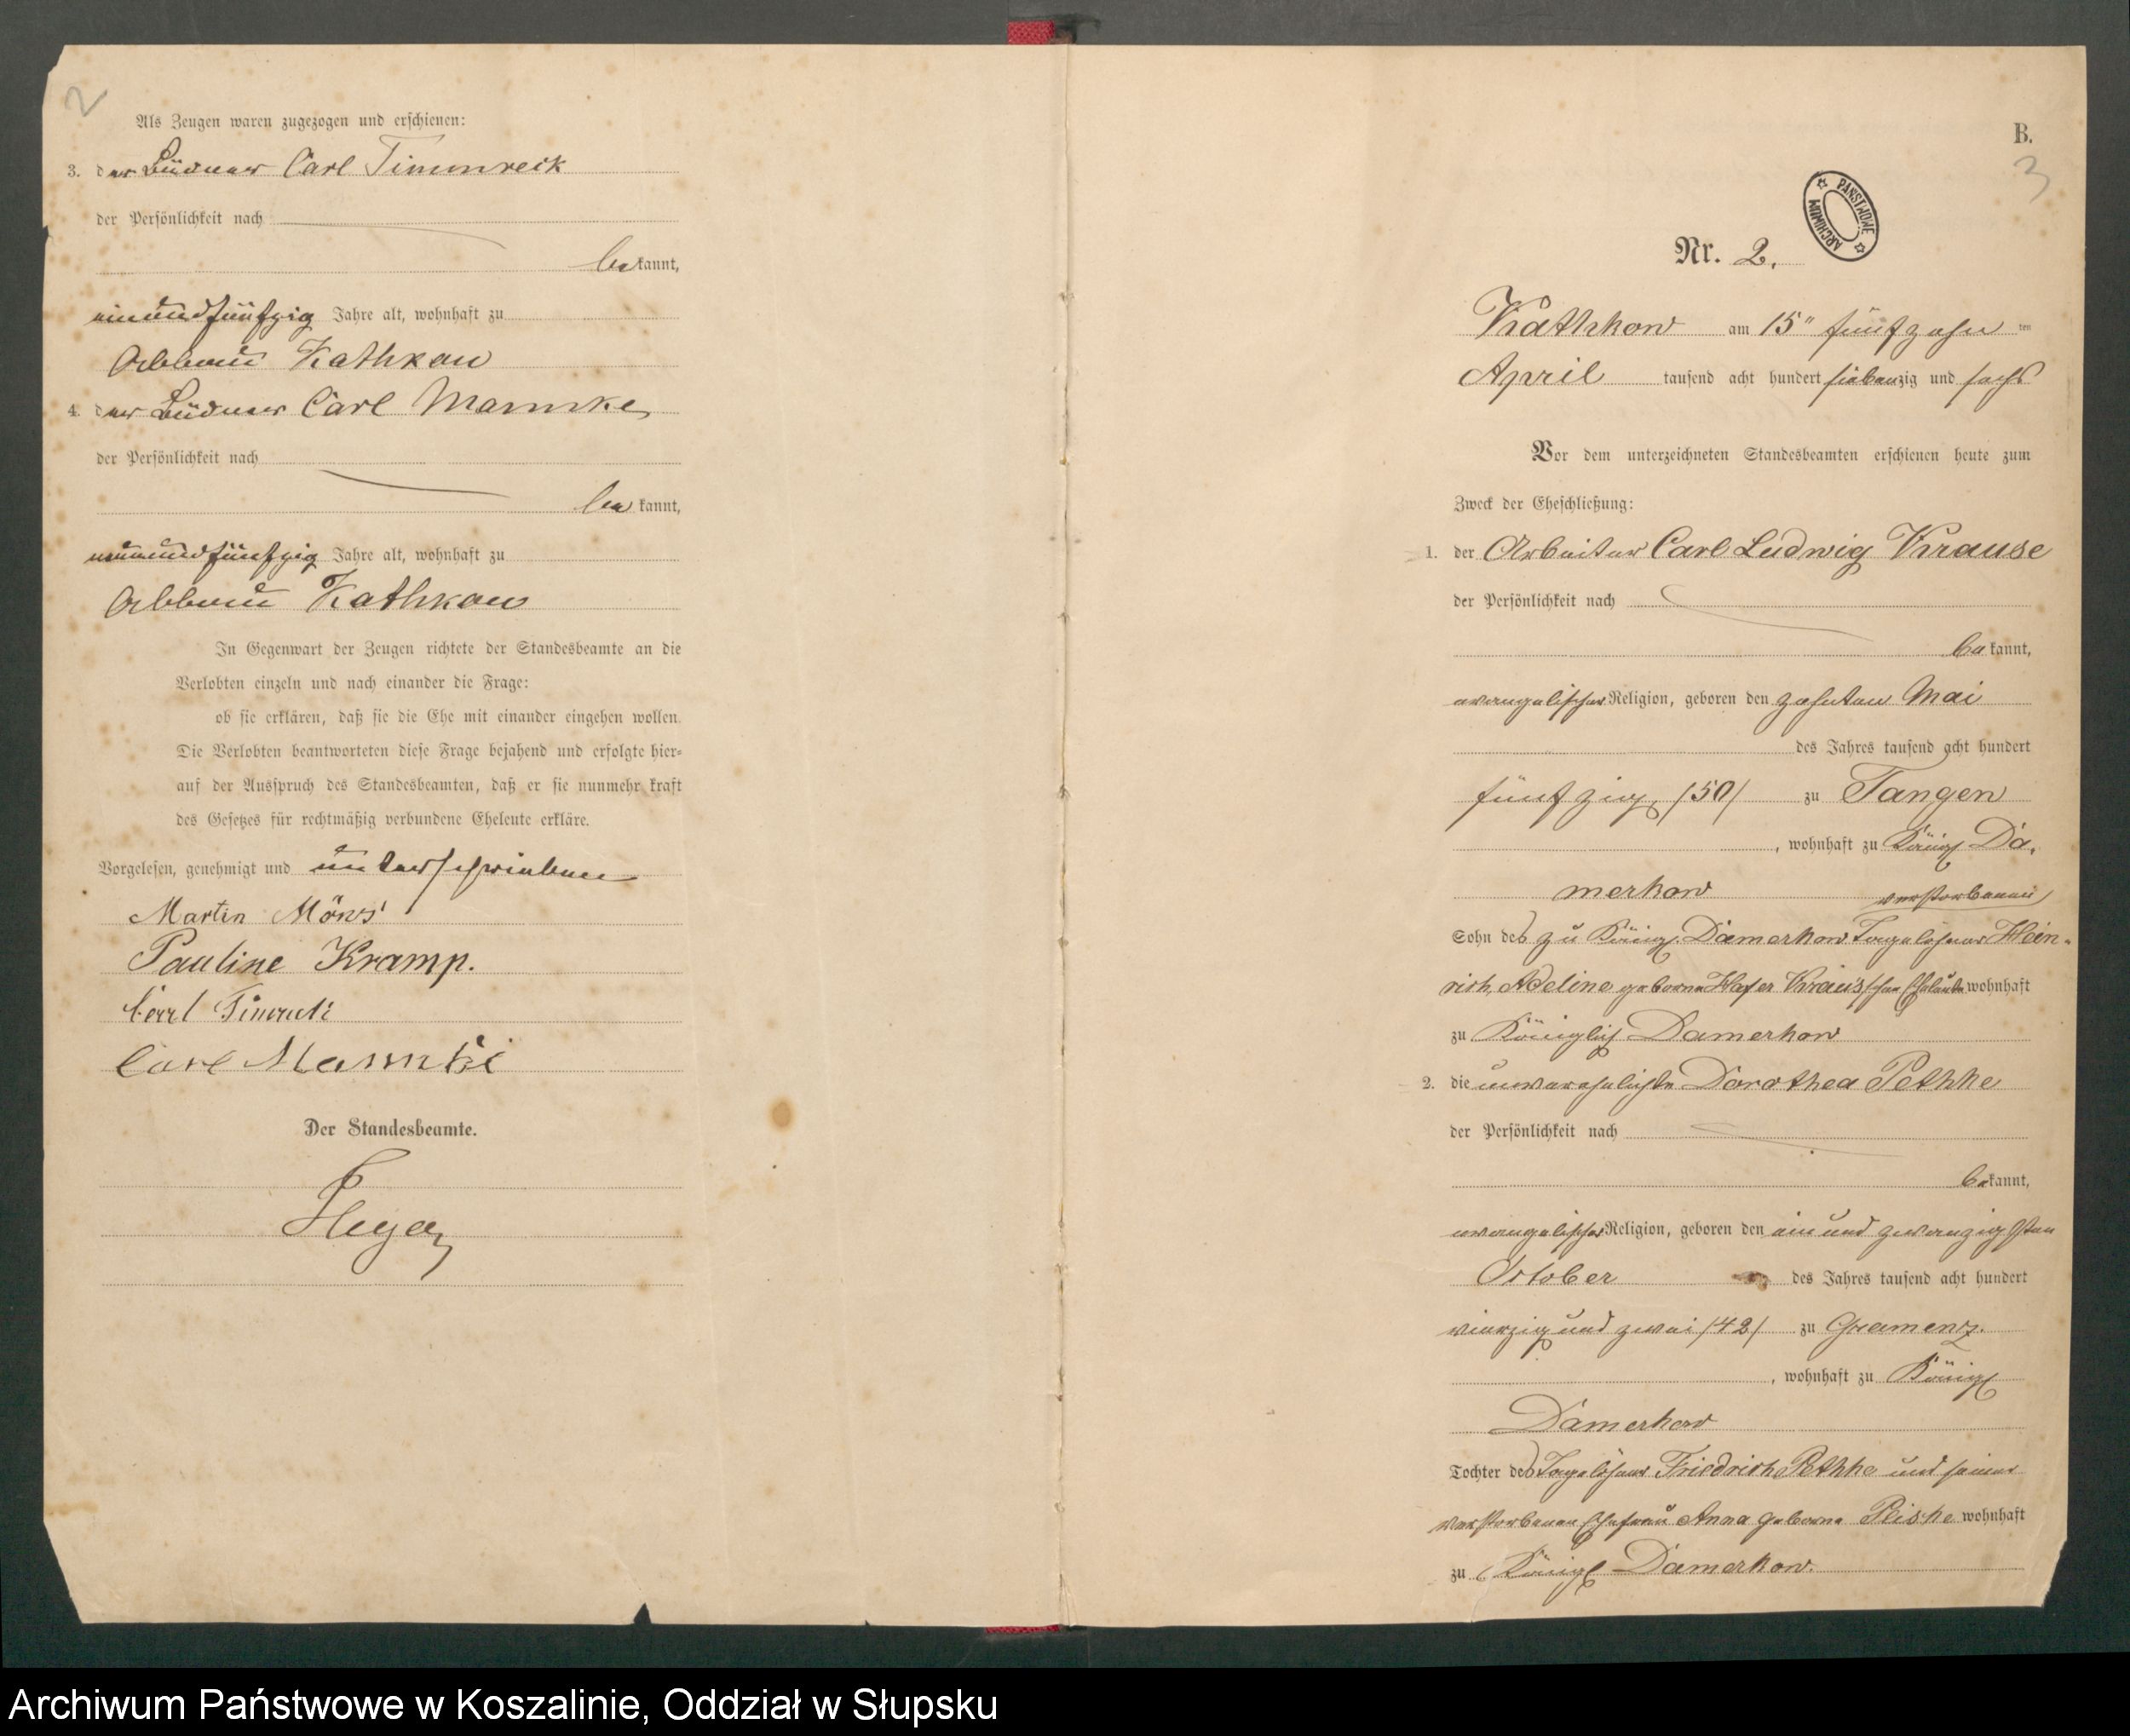 2
Als Zeugen waren zugezogen und erschienen:
3. der Büdner Carl Timmreck
der Persönlichkeit nach
bekannt,
einundfünfzig Jahre alt, wohnhaft zu
Abbau Kathkow
4. der Büdner Carl Mannke
der Persönlichkeit nach
bekannt,
neunundfünfzig Jahre alt, wohnhaft zu
Abbau Kathkow
In Gegenwart der Zeugen richtete der Standesbeamte an die
Verlobten einzeln und nach einander die Frage:
ob sie erklären, daß sie die Ehe mit einander eingehen wollen.
Die Verlobten beantworteten diese Frage bejahend und erfolgte hier-
auf der Ausspruch des Standesbeamten, daß er sie nunmehr kraft
des Gesetzes für rechtmäßig verbundene Eheleute erkläre.
Vorgelesen, genehmigt und unterschrieben
Martin
Pauline Kramp.
Carl
Carl
Der Standesbeamte.
B.
3
ARCHIWUM PAŃSTWOWE
Nr. 2.
Kathkow am 15" fünfzehnten
April tausend acht hundert siebenzig und sechs
Vor dem unterzeichneten Standesbeamten erschienen heute zum
Zweck der Eheschließung:
1. der Arbeiter Carl Ludwig Krause
der Persönlichkeit nach
bekannt,
evangelischer Religion, geboren den zehnten Mai
des Jahres tausend acht hundert
fünfzig /50/ zu Tangen
, wohnhaft zu Königl Da,
merkow verstorbenen
Sohn des zu Königl. Damerkow Tagelöhner Hein-
rich, Adeline geborne Krause'schen Eheleute wohnhaft
zu Königlich Damerkow
2. die unverehelichte Dorothea Pethke
der Persönlichkeit nach
bekannt,
evangelischer Religion, geboren den ein und zwanzigsten
October des Jahres tausend acht hundert
vierzig und zwei /42/ zu Gramenz.
, wohnhaft zu Königl
Damerkow
Tochter des Tagelöhner Friedrich Pethke und seiner
verstorbenen Ehefrau Anna geborne wohnhaft
zu Königl Damerkow.
Archiwum Państwowe w Koszalinie, Oddział w Słupsku